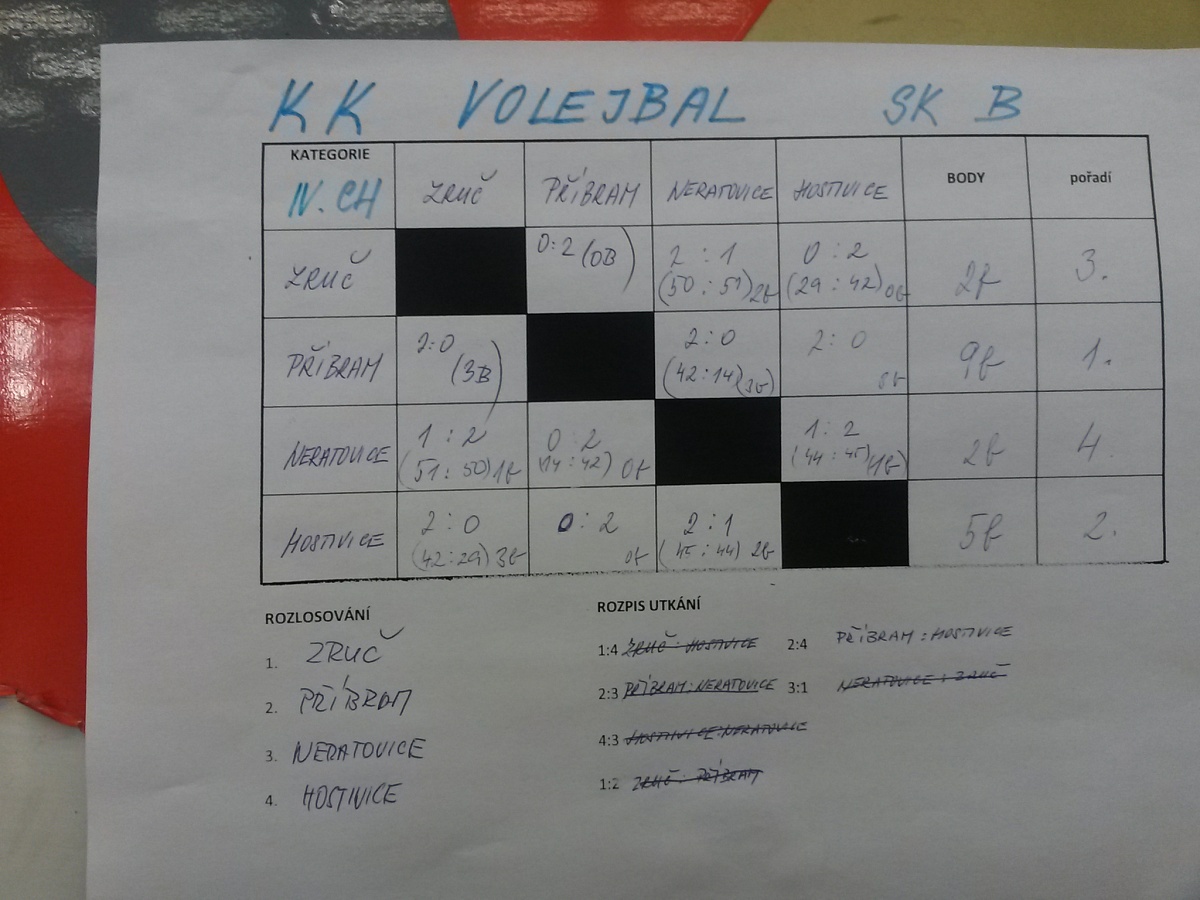 KK VOLEJBAL SK B
KATEGORIE IV. CH ZRUČ PŘÍBRAM NERATOVICE HOSTIVICE BODY pořadí
ZRUČ 0:2 (0B) 2 : 1 (50 : 51) 2b 0 : 2 (29 : 42) 0b 2b 3.
PŘÍBRAM 2:0 (3B) 2:0 (42:14) (3b) 2:0 9b 1.
NERATOVICE 1 : 2 (51 : 50) 1b 0 : 2 (14 : 42) 0b 1 : 2 (44 : 45) (1b) 2b 4.
HOSTIVICE 2 : 0 (42:29) 3b 0 : 2 0b 2 : 1 (45 : 44) 2b 5b 2.
ROZLOSOVÁNÍ
1. ZRUČ
2. PŘÍBRAM
3. NERATOVICE
4. HOSTIVICE
ROZPIS UTKÁNÍ
1:4 ZRUČ : HOSTIVICE 2:4 PŘÍBRAM : HOSTIVICE
2:3 PŘÍBRAM : NERATOVICE 3:1 NERATOVICE : ZRUČ
4:3 HOSTIVICE : NERATOVICE
1:2 ZRUČ : PŘÍBRAM